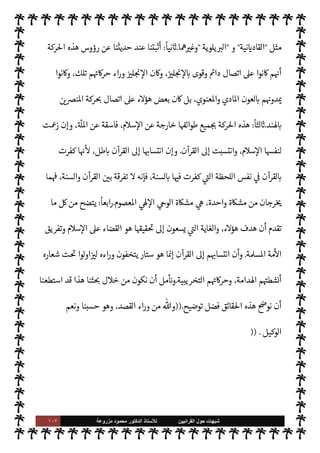 مثل "القاديانية" و "البريلوية "وغيرهما.ثانياً: أثبتنا عند حديثنا عن رؤوس هذه الحركة
أنهم كانوا على اتصال دائم وقوى بالإنجليز، وكان الإنجليز وراء حركاتهم تلك، وكانوا
يمدونهم بالعون المادي والمعنوي، بل كان بعض هؤلاء على اتصال بحركة المنصرين
بالهند.ثالثاً: هذه الحركة بجميع طوائفها خارجة عن الإسلام، فاسقة عن الملّة، وإن زعمت
لنفسها الإسلام، وانتسبت إلى القرآن. وإن انتسابها إلى القرآن باطل، لأنها كفرت
بالقرآن في نفس اللحظة التي كفرت فيها بالسنة، فإنه لا تفرقة بين القرآن والسنة، فهما
يخرجان من مشكاة واحدة، هي مشكاة الوحي الإلهي المعصوم.رابعاً: يتضح من كل ما
تقدم أن هدف هؤلاء، والغاية التي يسعون إلى تحقيقها هو القضاء على الإسلام وتفريق
الأمة المسلمة. وأن انتسابهم إلى القرآن إنما هو ستار يتخفون وراءه ليزاولوا تحت شعاره
أنشطتهم الهدامة، وحركاتهم التخريبية.ونأمل أن نكون من خلال بحثنا هذا قد استطعنا
أن نوضح هذه الحقائق فضل توضيح.((والله من وراء القصد، وهو حسبنا ونعم
الوكيل . ((
شبهات حول القرانيين للأستاذ الدكتور محمود مزروعة ١٠٧